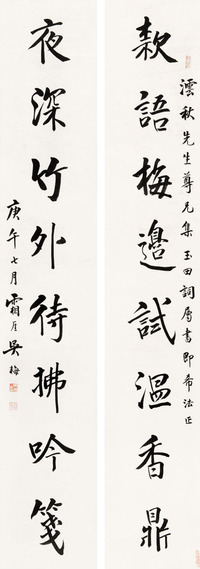 款語梅邊試溫香鼎
澐秋先生尊兄集玉田詞屬書即希法正
夜深竹外待拂吟箋
庚午七月霜厓吳梅